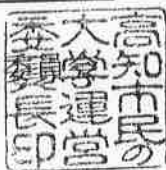 高知市民の
大学運営
委員長印